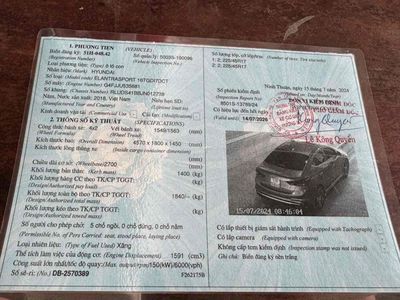 1. PHƯƠNG TIỆN (VEHICLE)
Biển đăng ký: 51H-048.42
(Registration Number)
Số quản lý: 5003S-100096
(Vehicle Inspection No.)
Loại phương tiện: (Type) ô tô con
Nhãn hiệu: (Mark) HYUNDAI
Số loại: (Model code) ELANTRASPORT 16TGDI7DCT
(Engine Number)
(Chassis Number)
Năm, Nước sản xuất: 2018, Việt Nam
(Manufactured Year and Country)
Niên hạn SD:
Kinh doanh vận tải
(Commercial Use)
Cải tạo
(Modification)
2. THÔNG SỐ KỸ THUẬT (SPECIFICATIONS)
Công thức bánh xe: 4x2
(Wheel Formula)
Vết bánh xe: 1549/1563 (mm)
(Wheel Tread)
Kích thước bao: (Overall Dimension) 4570 x 1800 x 1450 (mm)
Kích thước lòng thùng xe (mm)
(Inside cargo container dimension)
Chiều dài cơ sở: (Wheelbase) 2700 (mm)
Khối lượng bản thân: (Kerb mass) 1400 (kg)
Khối lượng hàng CC theo TK/CP TGGT: (kg)
(Design/Authorized pay load)
Khối lượng toàn bộ theo TK/CP TGGT: 1840/-- (kg)
(Design/Authorized total mass)
Khối lượng kéo theo TK/CP TGGT: (kg)
(Design/Authorized towed mass)
Số người cho phép chở: 5 chỗ ngồi, 0 chỗ đứng, 0 chỗ nằm
(Permissible No. of Pers Carried: seat, stood place, laying place)
Loại nhiên liệu: (Type of Fuel Used) Xăng
Thể tích làm việc của động cơ: (Engine Displacement) 1591 (cm3)
Công suất lớn nhất/tốc độ quay: (Max. output/rpm) 150(kW)/6000(vph)
Số sê-ri: (No.) DB-2570389
F262175B
Số lượng lốp, cỡ lốp/trục (Number of tires; Tire size/axle)
1: 2; 225/45R17
2: 2; 225/45R17
Số phiếu kiểm định
(Inspection Report No)
8501S-13789/24
Có hiệu lực đến hết ngày
14/07/2026
Ninh Thuận, ngày 15 tháng 7 năm 2024
(Issued on: Day/Month/Year)
ĐƠN VỊ KIỂM ĐỊNH
Lê Công Quyền
15/07/2024 08:46:04
Có lắp thiết bị giám sát hành trình (Equipped with Tachograph)
Có lắp camera (Equipped with camera)
Không cấp tem kiểm định (Inspection stamp was not issued)
Ghi chú: Biển đăng ký nền trắng